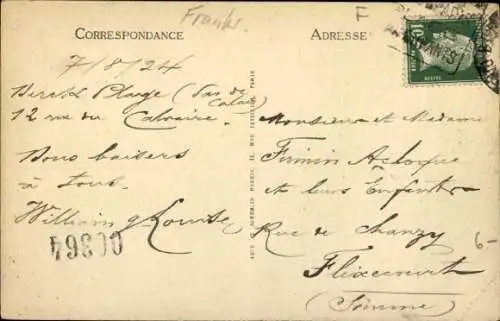 Franks.
F
CORRESPONDANCE
ADRESSE
7/8/24
Berck Plage (Pas de Calais)
12 rue du Calvaire.
Bons baisers
à tous
William
00364
Monsieur et Madame
Firmin Acloque
et leurs Enfants
Rue de Chanzy
Flixecourt
(Somme)
6-
10
POSTES